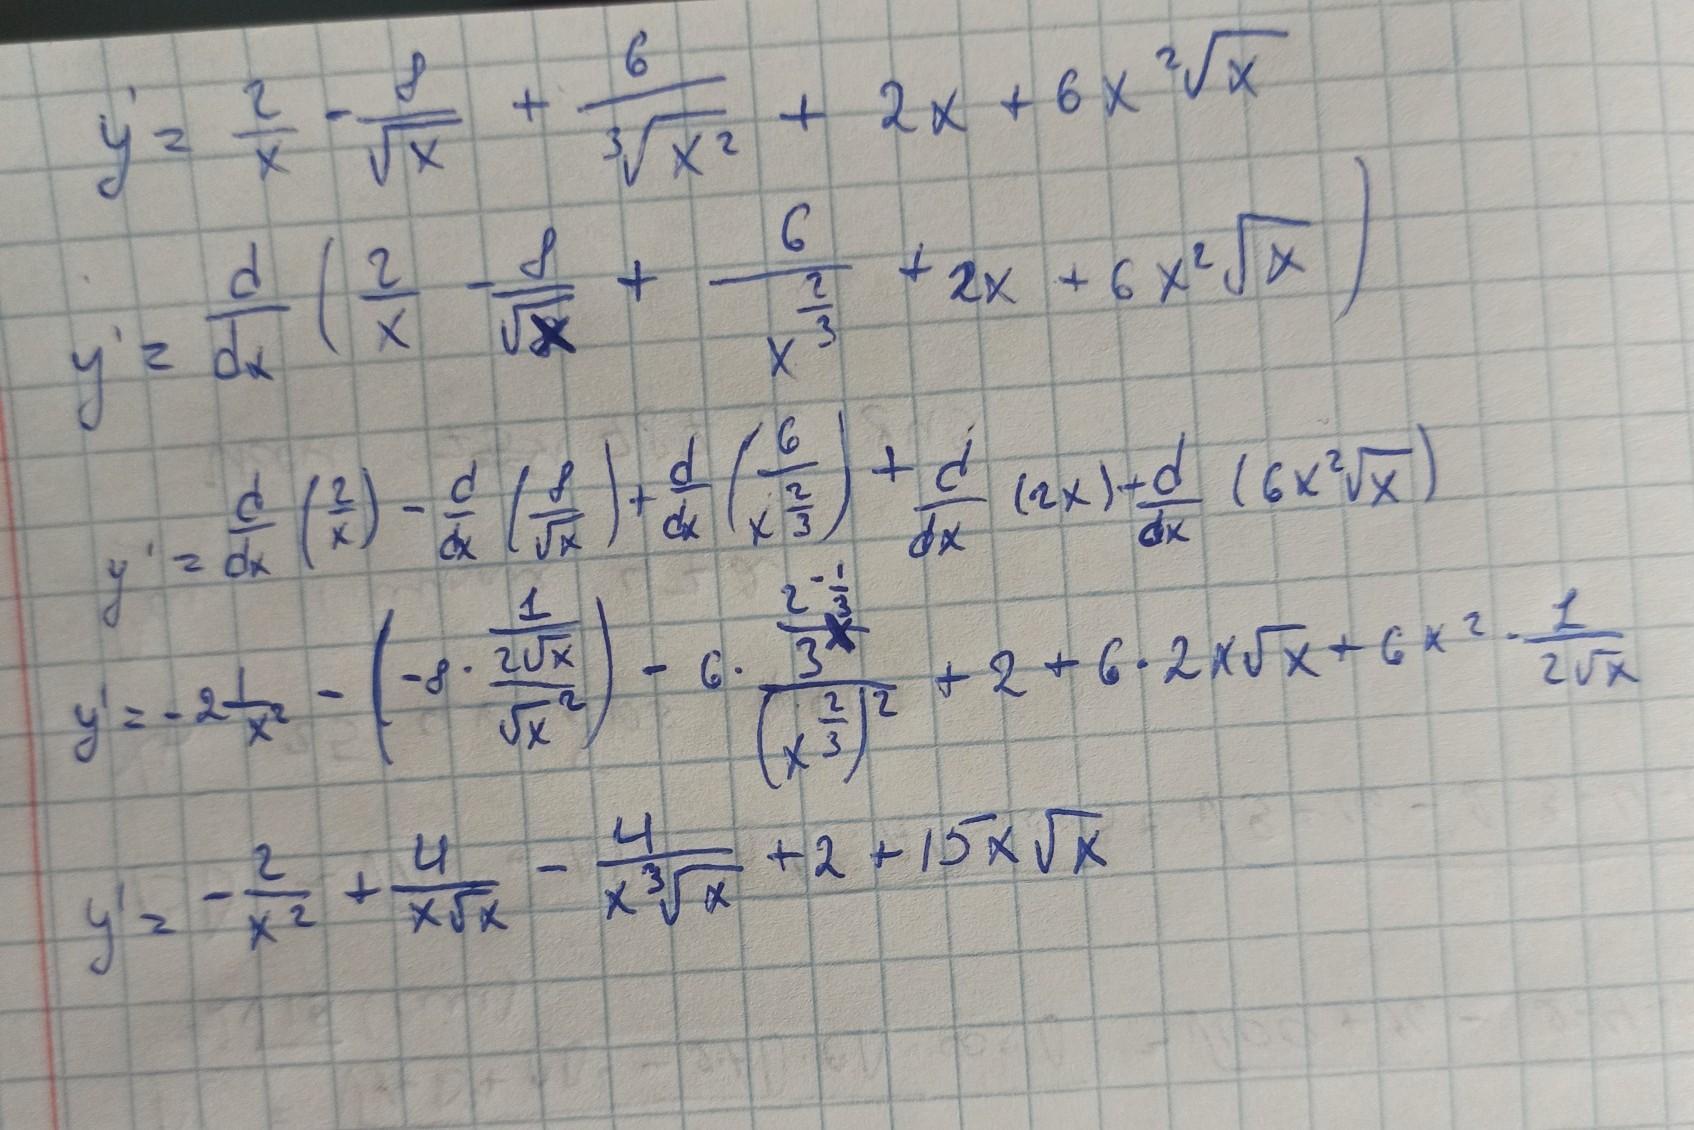 y' = 2/x - 8/√x + 6/∛(x²) + 2x + 6x²√x
y' = d/dx (2/x - 8/√x + 6/x^(2/3) + 2x + 6x²√x)
y' = d/dx (2/x) - d/dx (8/√x) + d/dx (6/x^(2/3)) + d/dx (2x) + d/dx (6x²√x)
y' = -2 1/x² - (-8 · (1/(2√x))/(√x²)) - 6 · (2/3 x^(-1/3))/(x^(2/3))² + 2 + 6 · 2x√x + 6x² · 1/(2√x)
y' = -2/x² + 4/(x√x) - 4/(x∛x) + 2 + 15x√x